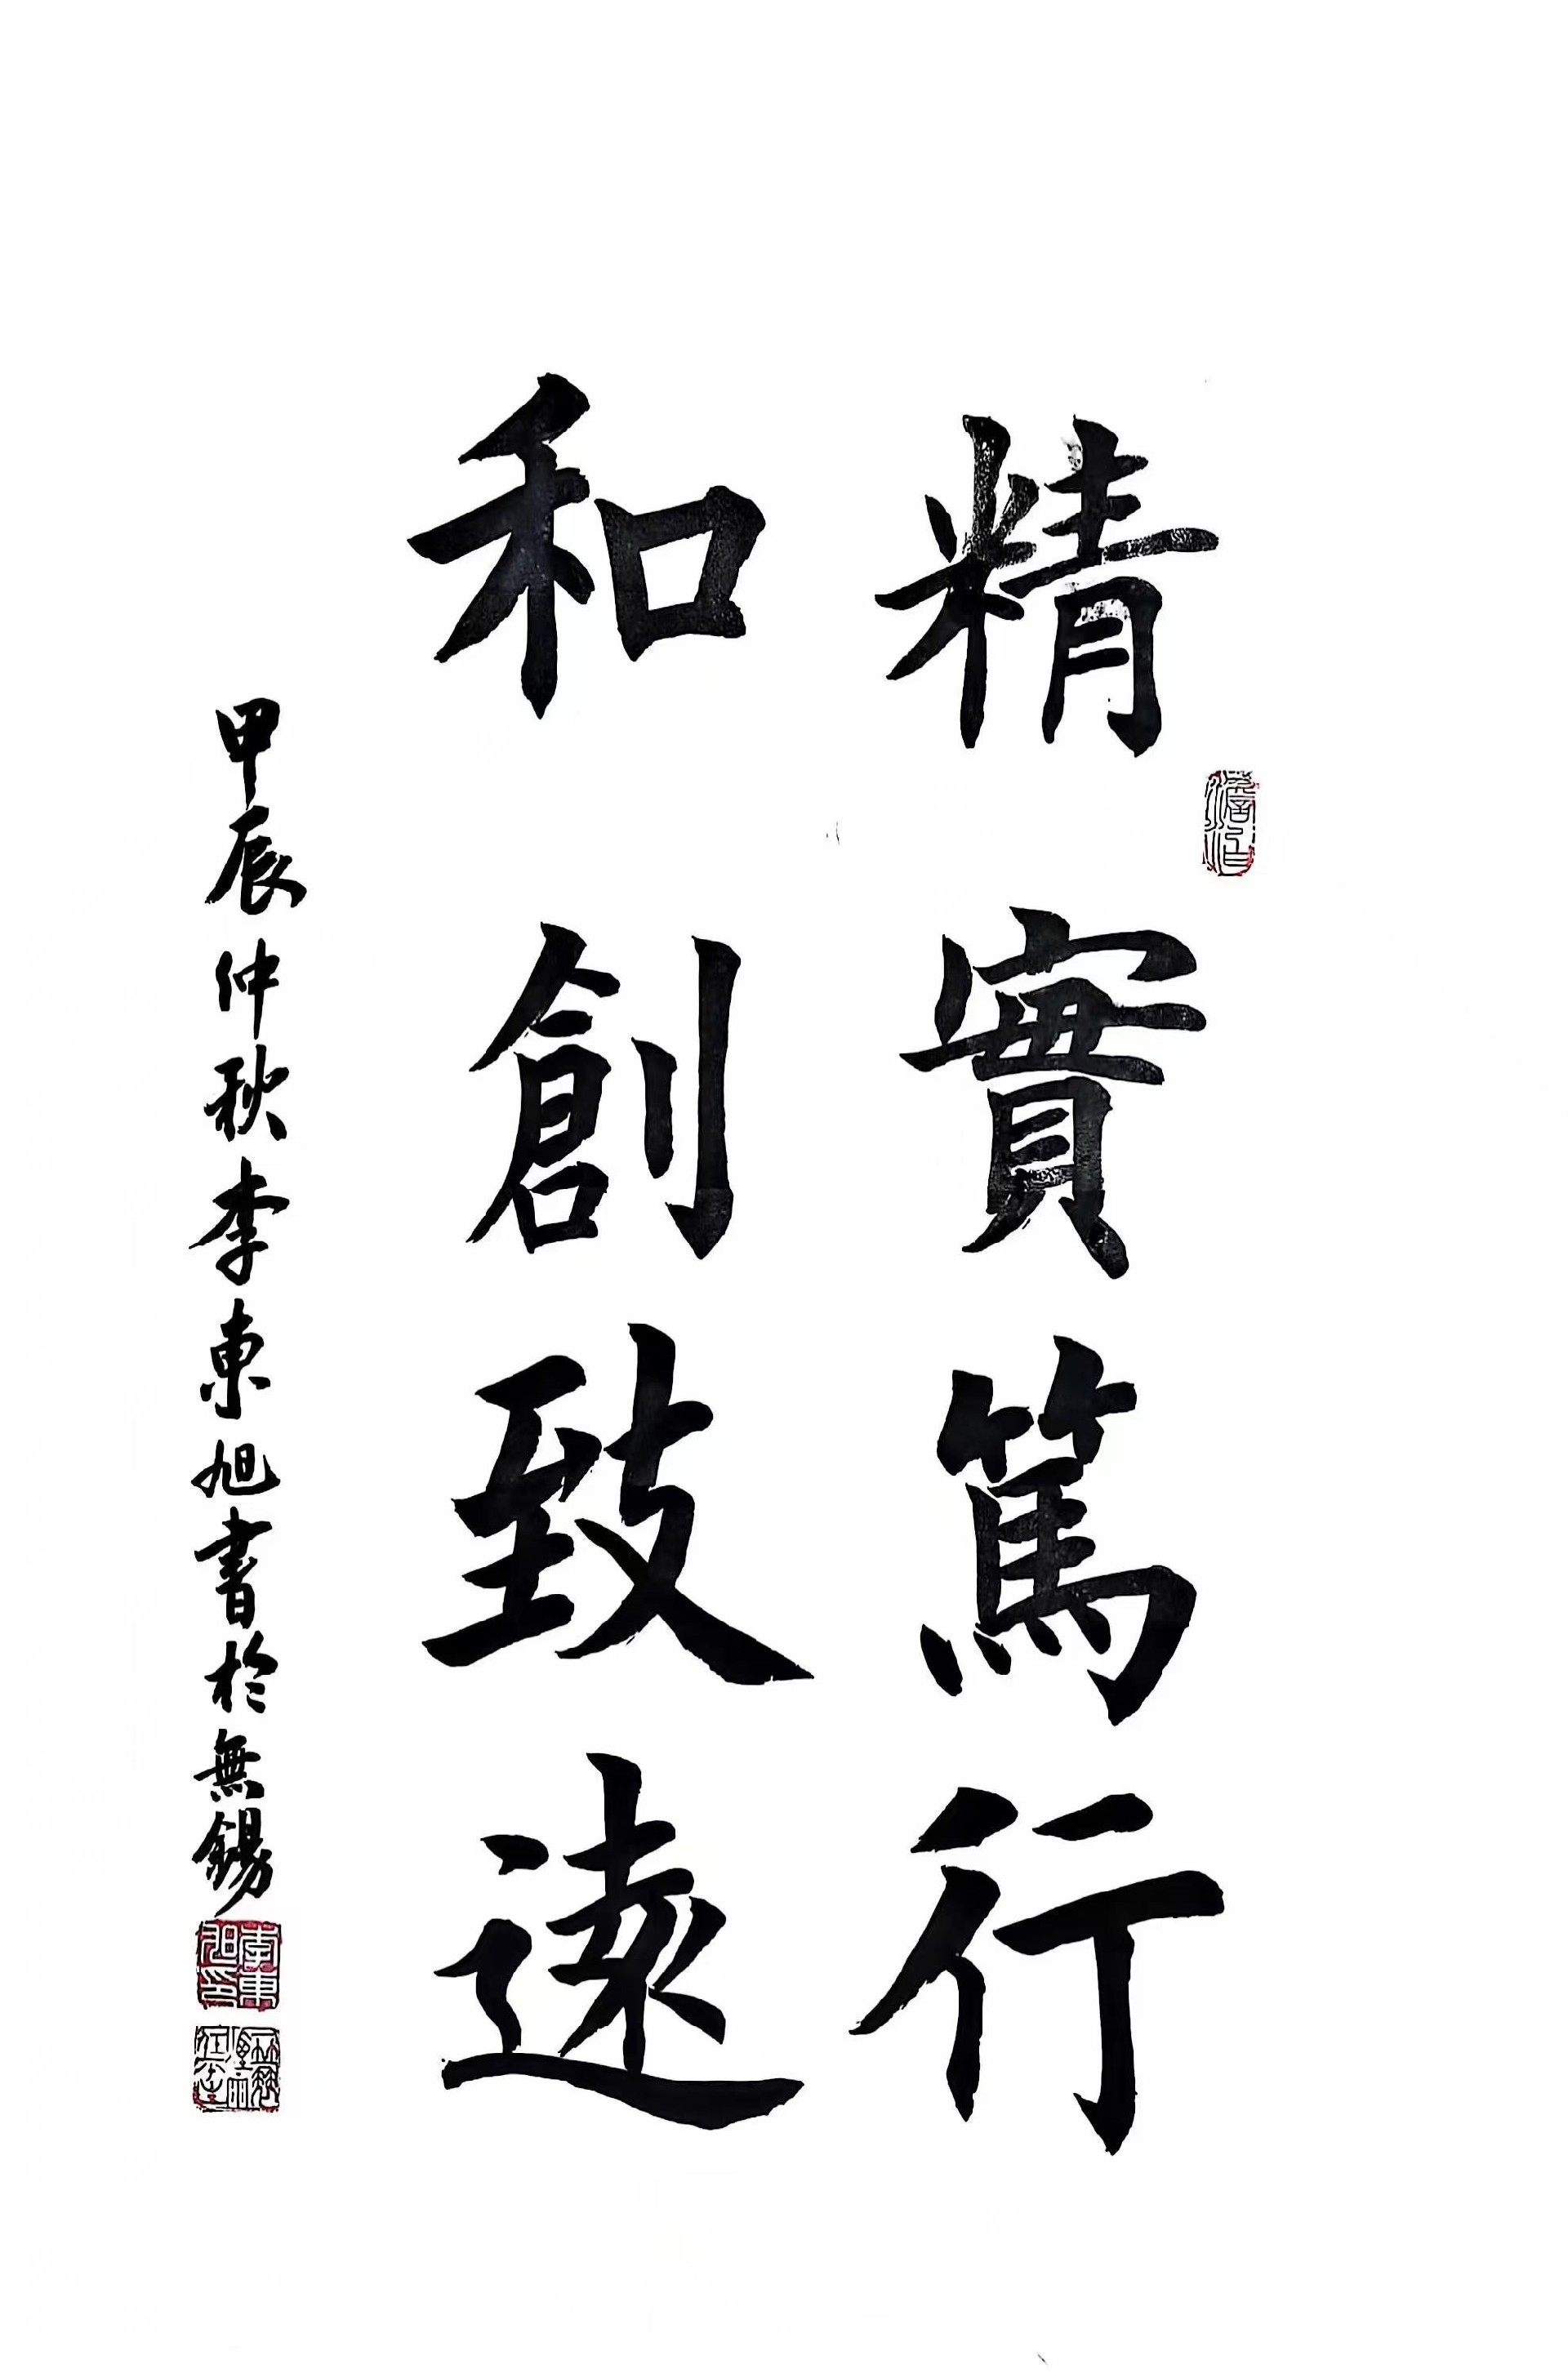 精實篤行
和創致遠
甲辰仲秋李東旭書於無錫
李東旭印